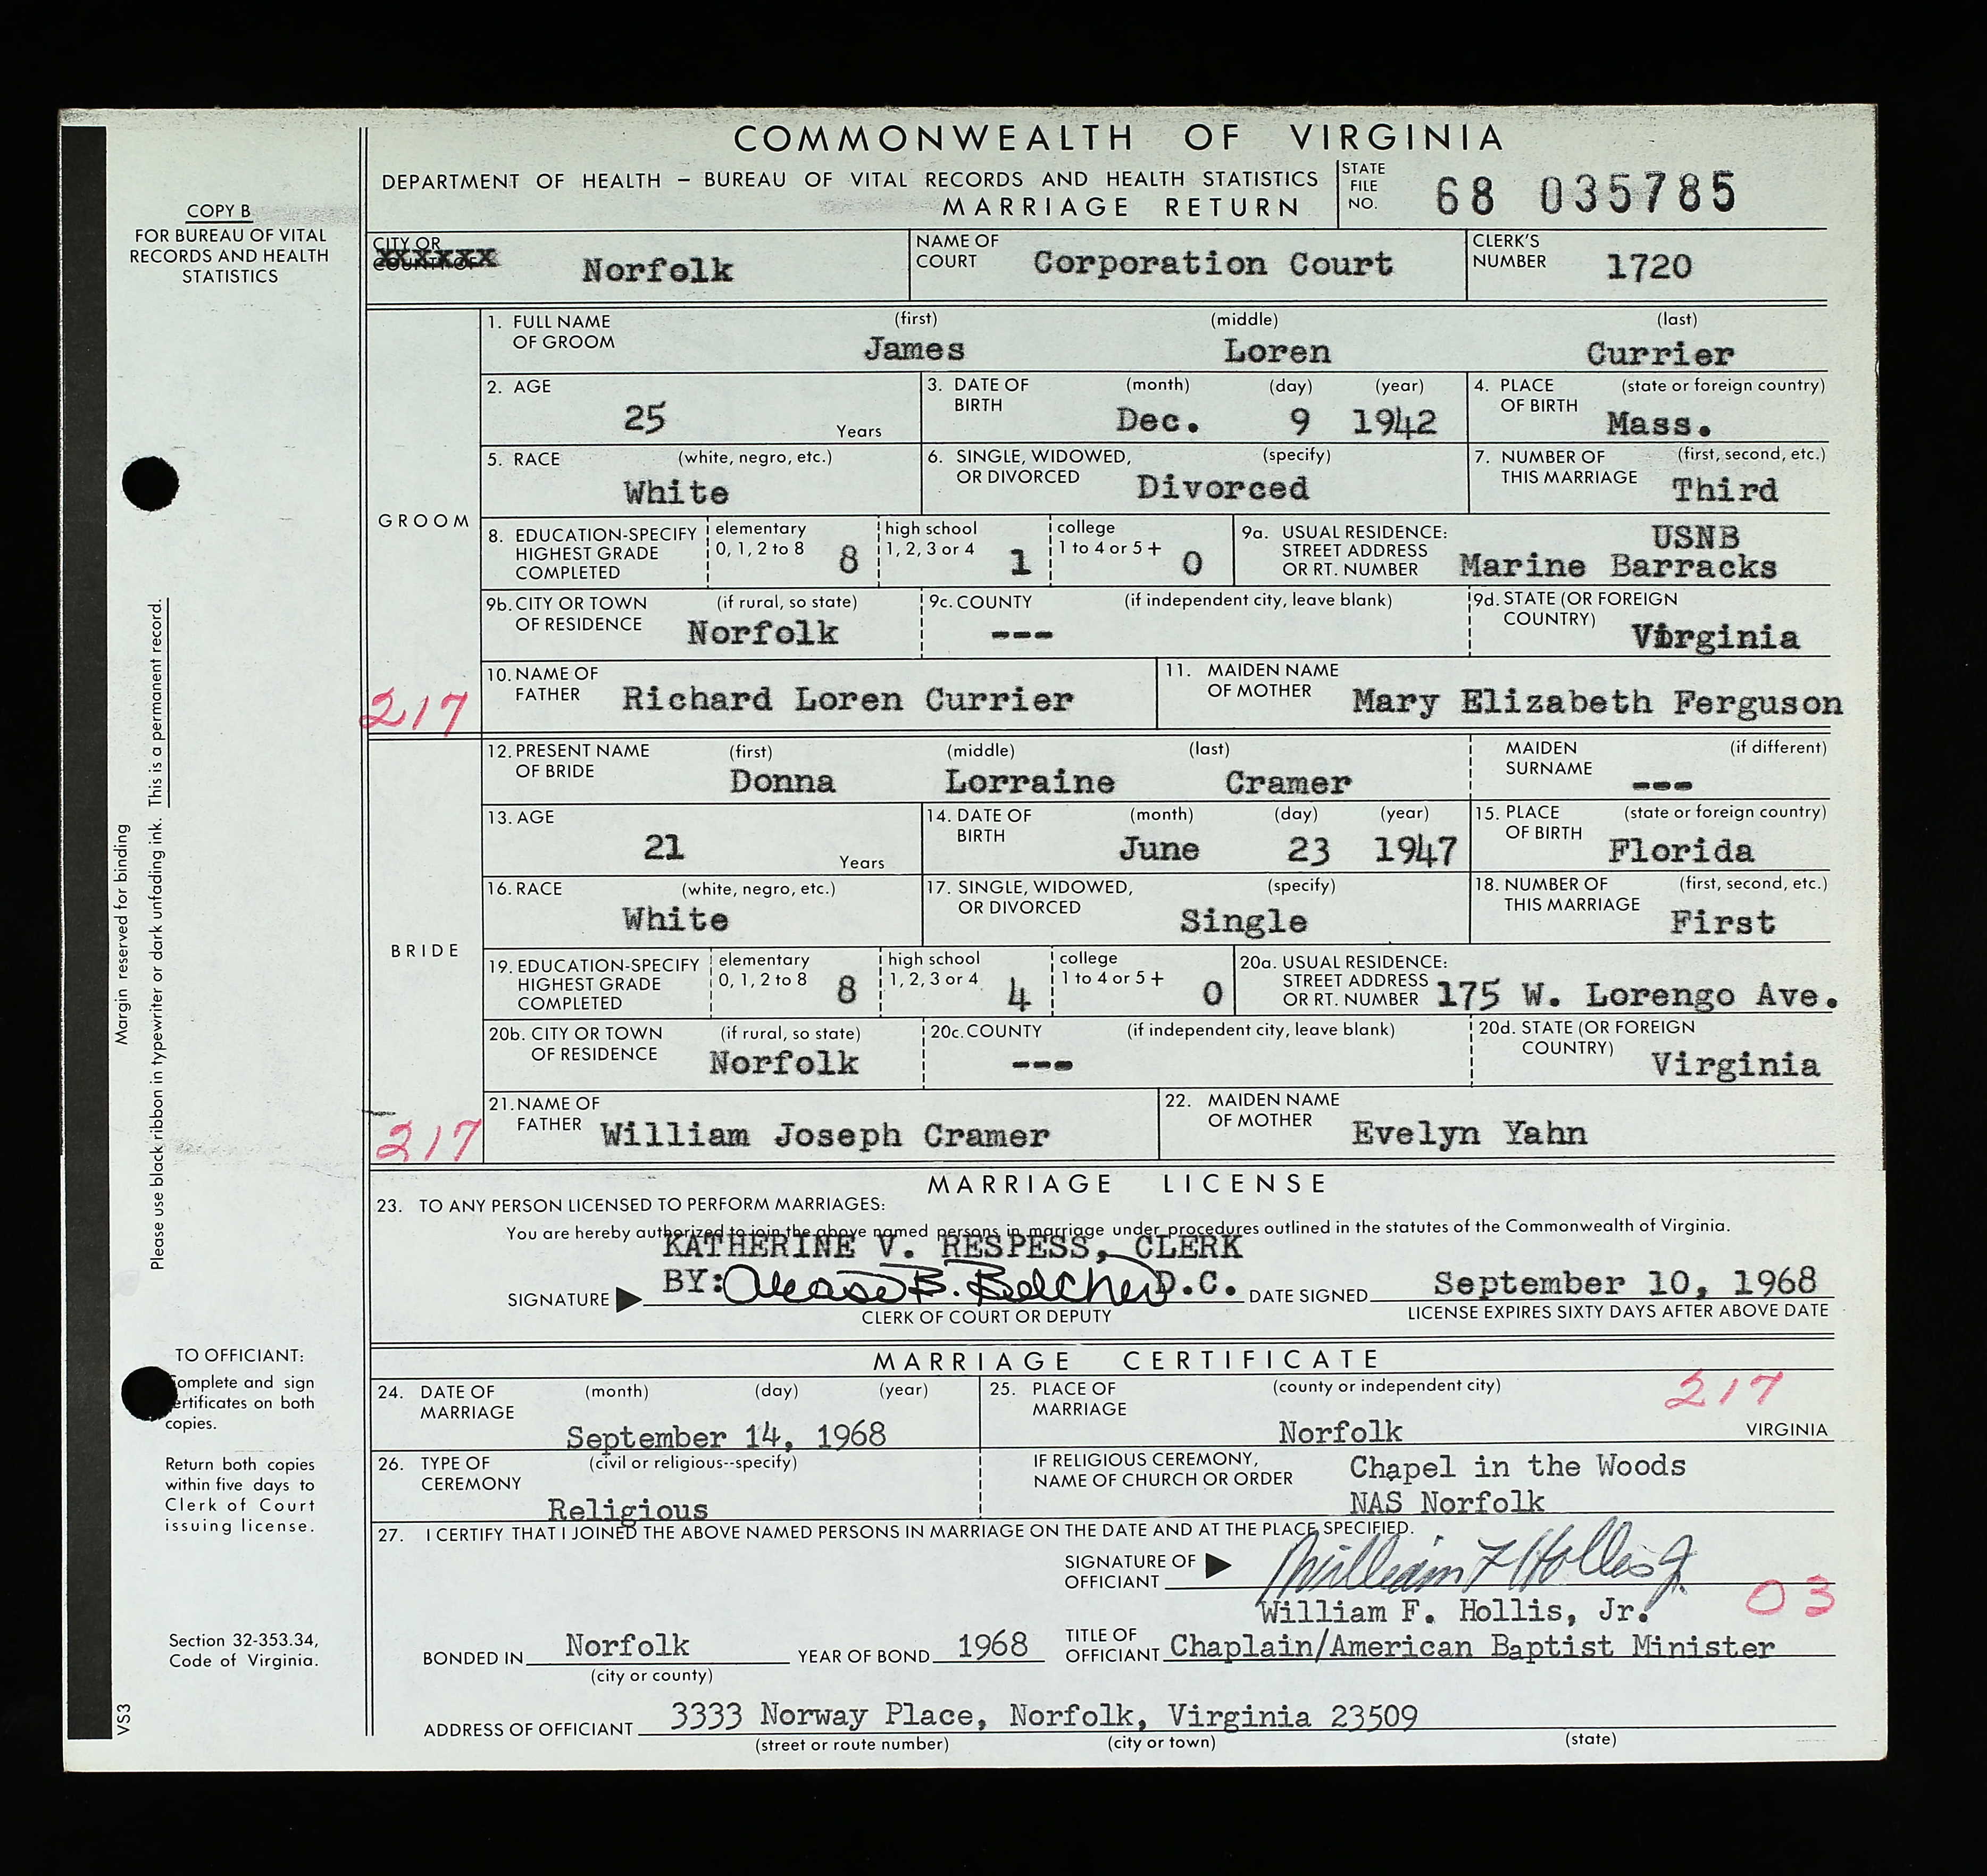 COMMONWEALTH OF VIRGINIA
DEPARTMENT OF HEALTH – BUREAU OF VITAL RECORDS AND HEALTH STATISTICS
MARRIAGE RETURN
STATE FILE NO. 68 035785
COPY B
FOR BUREAU OF VITAL
RECORDS AND HEALTH
STATISTICS
CITY OR
COUNTY OF
xxxxxx
Norfolk
NAME OF COURT Corporation Court
CLERK'S NUMBER 1720
GROOM
1. FULL NAME OF GROOM (first) (middle) (last)
James Loren Currier
2. AGE 25 Years
3. DATE OF BIRTH (month) (day) (year)
Dec. 9 1942
4. PLACE OF BIRTH (state or foreign country)
Mass.
5. RACE (white, negro, etc.)
White
6. SINGLE, WIDOWED, OR DIVORCED (specify)
Divorced
7. NUMBER OF THIS MARRIAGE (first, second, etc.)
Third
8. EDUCATION-SPECIFY HIGHEST GRADE COMPLETED
elementary 0, 1, 2 to 8 8
high school 1, 2, 3 or 4 1
college 1 to 4 or 5+ 0
9a. USUAL RESIDENCE: STREET ADDRESS OR RT. NUMBER
USNB
Marine Barracks
9b. CITY OR TOWN OF RESIDENCE (if rural, so state)
Norfolk
9c. COUNTY (if independent city, leave blank)
---
9d. STATE (OR FOREIGN COUNTRY)
Virginia
10. NAME OF FATHER Richard Loren Currier
11. MAIDEN NAME OF MOTHER Mary Elizabeth Ferguson
217
BRIDE
12. PRESENT NAME OF BRIDE (first) (middle) (last)
Donna Lorraine Cramer
MAIDEN SURNAME (if different)
---
13. AGE 21 Years
14. DATE OF BIRTH (month) (day) (year)
June 23 1947
15. PLACE OF BIRTH (state or foreign country)
Florida
16. RACE (white, negro, etc.)
White
17. SINGLE, WIDOWED, OR DIVORCED (specify)
Single
18. NUMBER OF THIS MARRIAGE (first, second, etc.)
First
19. EDUCATION-SPECIFY HIGHEST GRADE COMPLETED
elementary 0, 1, 2 to 8 8
high school 1, 2, 3 or 4 4
college 1 to 4 or 5+ 0
20a. USUAL RESIDENCE: STREET ADDRESS OR RT. NUMBER
175 W. Lorengo Ave.
20b. CITY OR TOWN OF RESIDENCE (if rural, so state)
Norfolk
20c. COUNTY (if independent city, leave blank)
---
20d. STATE (OR FOREIGN COUNTRY)
Virginia
21. NAME OF FATHER William Joseph Cramer
22. MAIDEN NAME OF MOTHER Evelyn Yahn
217
MARRIAGE LICENSE
23. TO ANY PERSON LICENSED TO PERFORM MARRIAGES:
You are hereby authorized to join the above named persons in marriage under procedures outlined in the statutes of the Commonwealth of Virginia.
KATHERINE V. RESPESS, CLERK
SIGNATURE BY: B. Belcher D.C. DATE SIGNED September 10, 1968
CLERK OF COURT OR DEPUTY
LICENSE EXPIRES SIXTY DAYS AFTER ABOVE DATE
MARRIAGE CERTIFICATE
24. DATE OF MARRIAGE (month) (day) (year)
September 14, 1968
25. PLACE OF MARRIAGE (county or independent city)
217
Norfolk VIRGINIA
26. TYPE OF CEREMONY (civil or religious--specify)
Religious
IF RELIGIOUS CEREMONY, NAME OF CHURCH OR ORDER
Chapel in the Woods
NAS Norfolk
27. I CERTIFY THAT I JOINED THE ABOVE NAMED PERSONS IN MARRIAGE ON THE DATE AND AT THE PLACE SPECIFIED.
SIGNATURE OF OFFICIANT William F Hollis Jr.
William F. Hollis, Jr.
03
BONDED IN Norfolk YEAR OF BOND 1968
(city or county)
TITLE OF OFFICIANT Chaplain/American Baptist Minister
ADDRESS OF OFFICIANT 3333 Norway Place, Norfolk, Virginia 23509
(street or route number) (city or town) (state)
Margin reserved for binding
Please use black ribbon in typewriter or dark unfading ink. This is a permanent record.
TO OFFICIANT:
Complete and sign
certificates on both
copies.
Return both copies
within five days to
Clerk of Court
issuing license.
Section 32-353.34,
Code of Virginia.
VS3